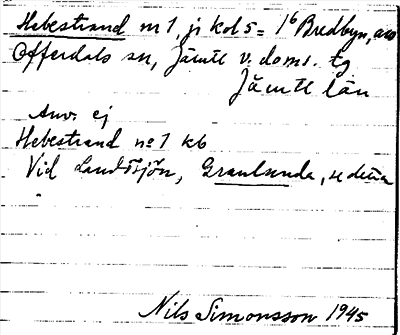 Hebestrand nr 1, jr kol 5 = 1⁶ Bredbyn, av
Offerdals sn, Jämtl v. doms. tg
Jämtl län
Anv. ej
Hebestrand no 1 kb
Vid Landösjön, Granlunda, se detta
Nils Simonsson 1945